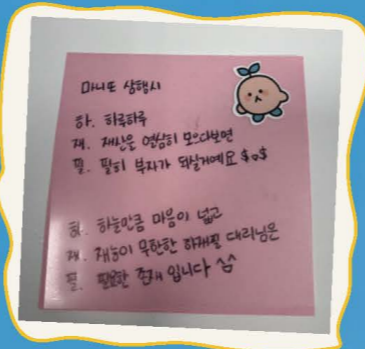 마니또 삼행시
하. 하루하루
재. 재산을 열심히 모으다보면
필. 필히 부자가 되실거예요 $o$
하. 하늘만큼 마음이 넓고
재. 재능이 무한한 하재필 대리님은
필. 필요한 존재 입니다 ^^